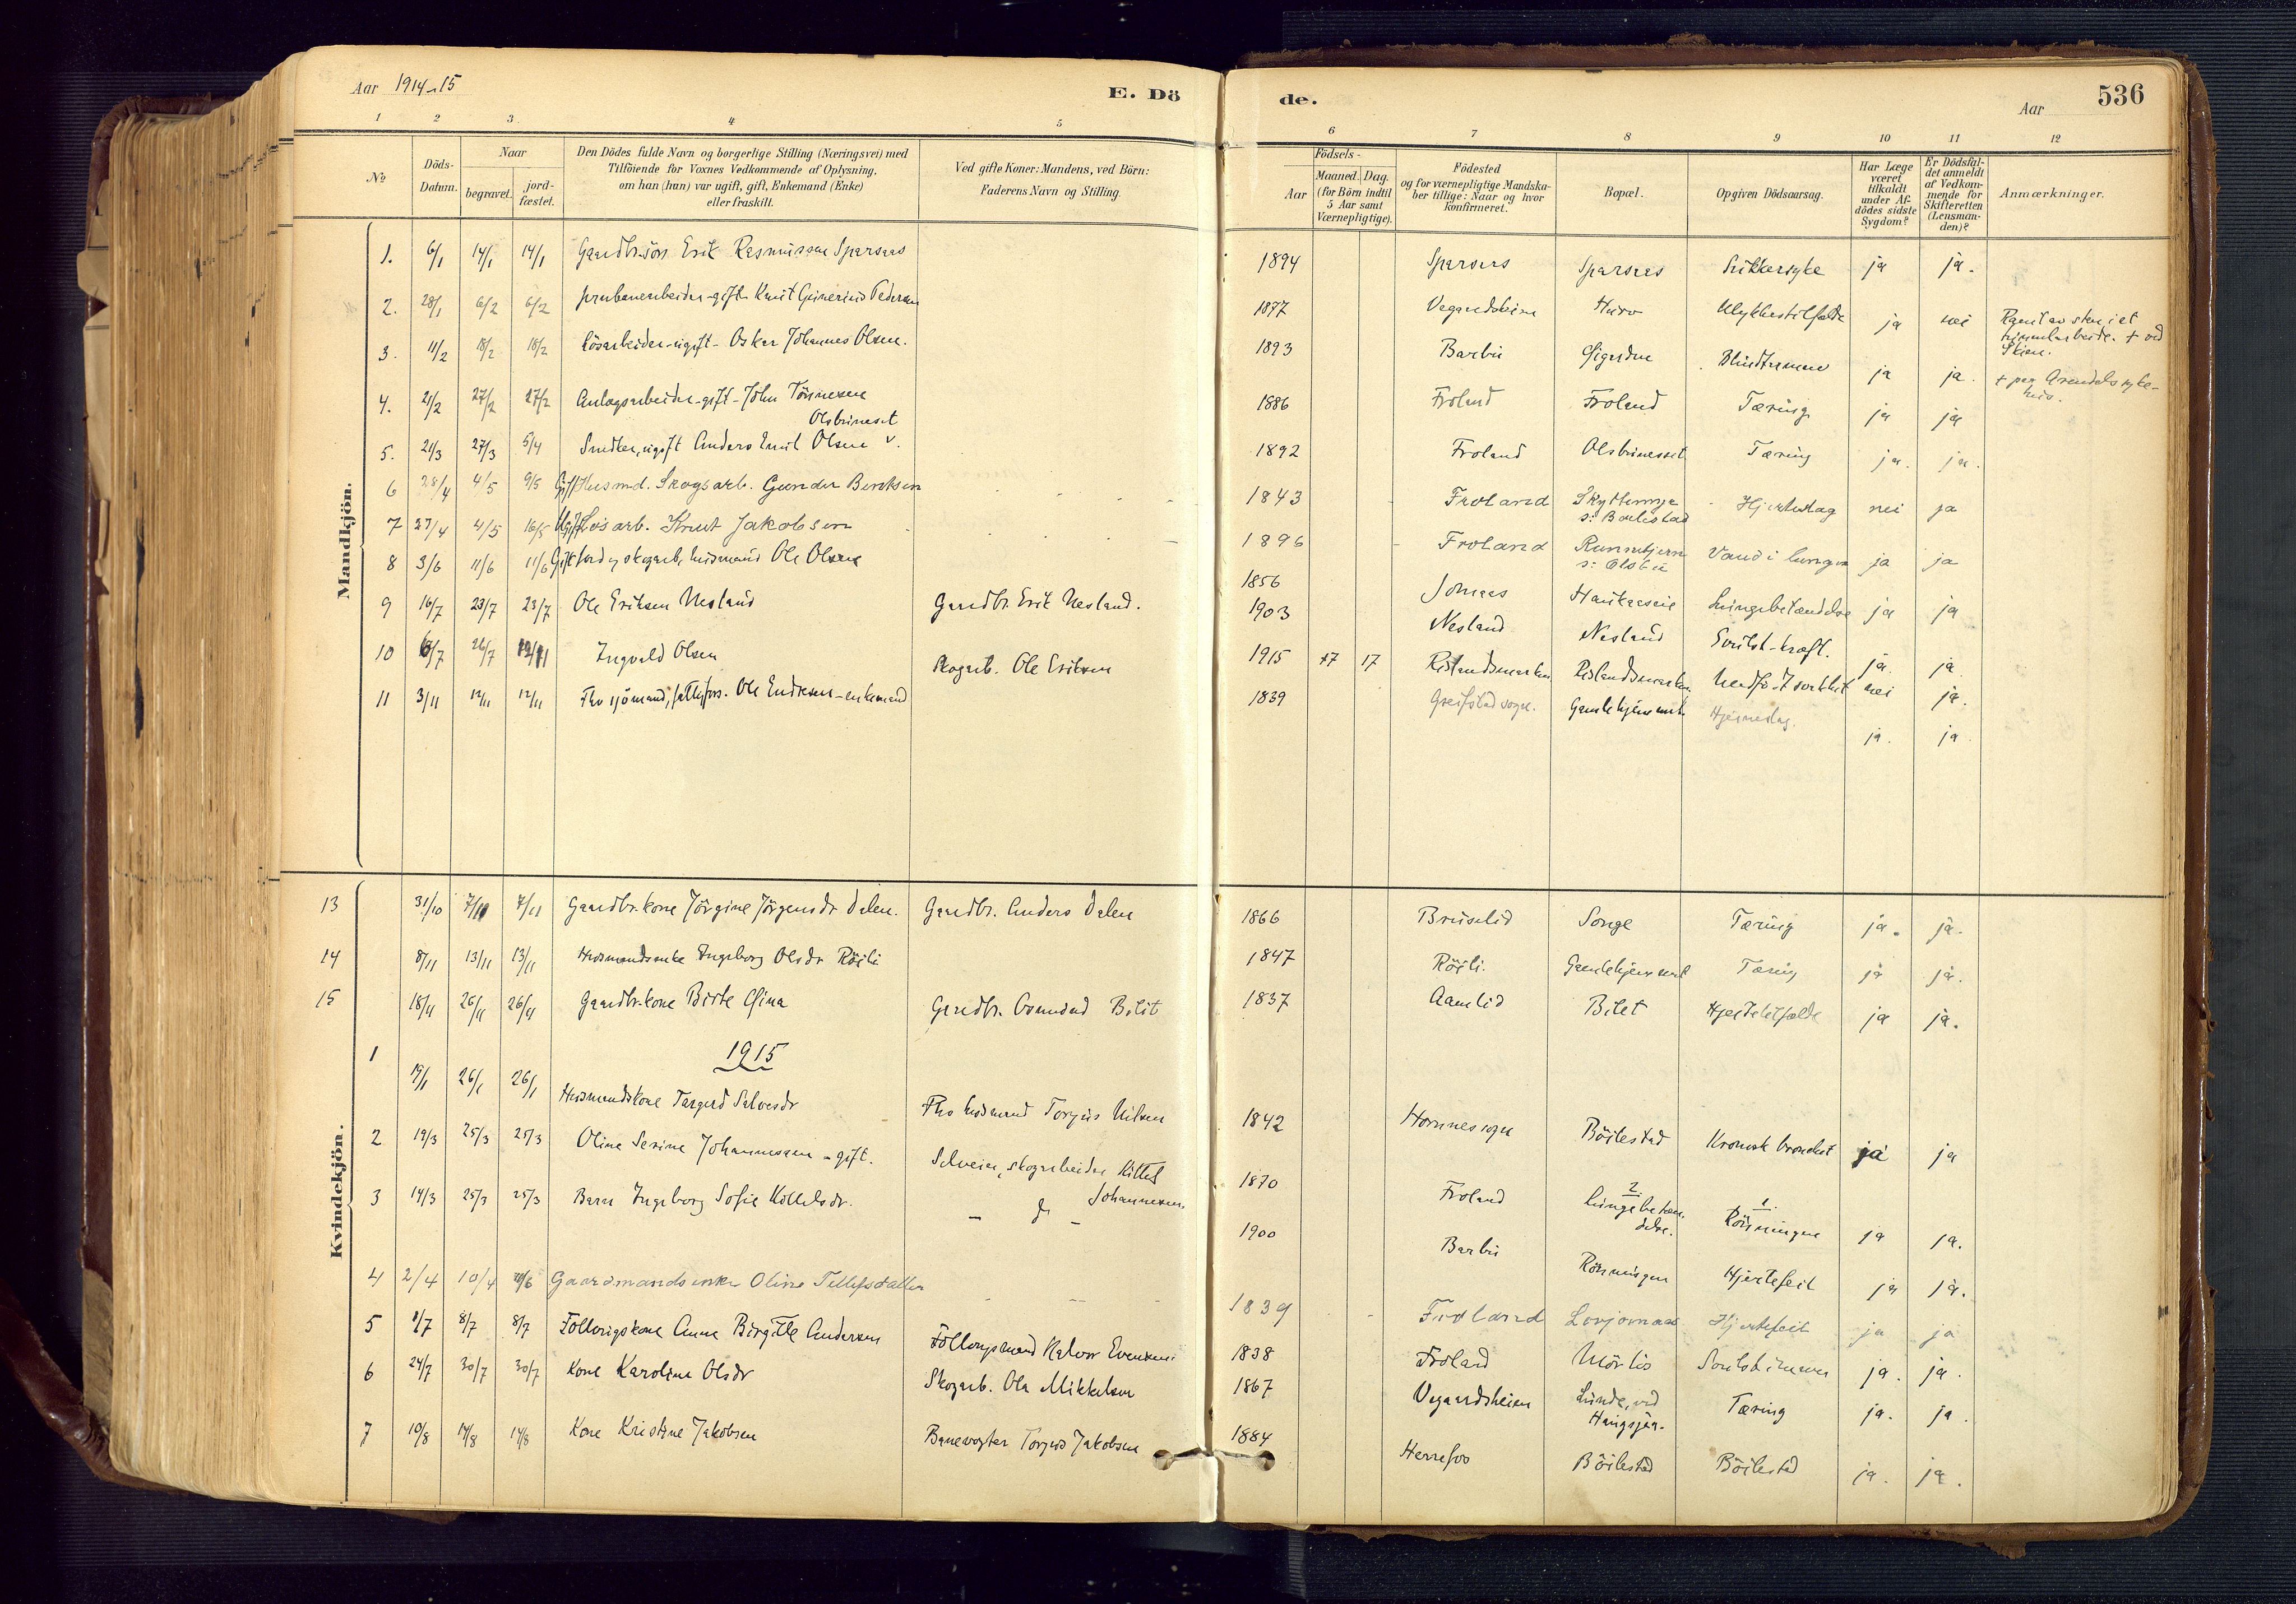 Aar 1914-15
E. Dö
de.
Aar
536
1 2 3 4 5
6 7 8 9 10 11 12
No
Döds-Datum.
Naar
begravet.
jord-fæstet.
Den Dödes fulde Navn og borgerlige Stilling (Næringsvei) med
Tilföiende for Voxnes Vedkommende af Oplysning,
om han (hun) var ugift, gift, Enkemand (Enke)
eller fraskilt.
Ved gifte Koner: Mandens, ved Börn:
Faderens Navn og Stilling.
Födsels-
Aar
Maaned. Dag.
(for Börn indtil
5 Aar samt
Værnepligtige).
Födested
og for værnepligtige Mandska-
ber tillige: Naar og hvor
konfirmeret.
Bopæl.
Opgiven Dödsaarsag.
Har Læge
været
tilkaldt
under Af-
dödes sidste
Sygdom?
Er Dödsfal-
det anmeldt
af Vedkom-
mende for
Skifteretten
(Lensman-
den)?
Anmærkninger.
Mandkjön.
1. 6/1 14/1 14/1 Gaardbr.sön Erik Rasmussen Sparsaas 1894 Sparsaas Sparsaas Sukkersyke ja ja.
2. 28/1 6/2 6/2 jernbanearbeider-gift Knut Gunerius Pedersen 1877 Vegaardsheien Ulykkestilfælde ja nei Ramt av sten i et
tunnelarbeide. + ved
Skien.
3. 11/2 18/2 18/2 lösarbeider-ugift- Oskar Johannes Olsen. 1893 Barbu Blindtarmen ja ja. + paa Arendals syke-
hus.
4. 21/2 27/2 27/2 Anlægsarbeider-gift-John Tönnesen 1886 Froland Froland Tæring ja ja
Olsbuneset
5. 21/3 27/3 5/4 Snedker, ugift Anders Emil Olsen v. 1892 Froland Olsbunesset Tæring ja. ja.
6 28/4 4/5 9/5 Gift Husmd. Skogsarb. Gunder Bentsen 1843 Froland
s: Boilestad Hjerteslag nei ja
7 27/4 4/5 16/5 Ugift Løsarb. Knut Jakobsen 1896 Froland
s: Olsbu Vand i lungen ja ja
8 3/6 11/6 11/6 Gift skogarb, husmand Ole Olsen 1856 Jomaas Lungebetændelse ja ja
9 16/7 23/7 23/7 Ole Eriksen Nesland Gaardbr. Erik Nesland. 1903 Nesland Nesland ja ja
10 6/7 26/7 Ingvald Olsen Skogarb. Ole Eriksen 1915 17 17 Rislandsmarken Rislandsmarken Medfödt svakhet nei ja.
11 3/11 12/11 12/11 Fhv sjömand, Ole Endresen-enkemand 1839 Greifstad sogn. Gamlehjemmet. Hjerneslag. ja. ja
Kvindekjön.
13 31/10 7/11 7/11 Gaardbr.kone Jörgine Jörgensdr Dalen. Gaardbr. Anders Dalen 1866 Bruselid Songe Tæring ja. ja.
14 8/11 13/11 13/11 Husmandsenke Ingeborg Olsdr Röili 1847 Röili. Gamlehjemmet Tæring ja ja.
15 18/11 26/11 26/11 Gaardbr.kone Birte Gina Gaardbr. Osmund Bilit 1837 Aamlid Bilet Hjertetilfælde ja ja.
1915
1 19/1 26/1 26/1 Husmandskone Targerd Salvesdr Fhv husmand Torjus Nilsen 1842 Hornnes sogn Böilestad Kronisk bronchit ja ja
2 19/3 25/3 25/3 Oline Serine Johannesen - gift. Selveier, skogarbeider Kittel
Johannesen 1870 Froland 2 Lungebetæn-
delse. 1. Rönningen ja ja.
3 14/3 25/3 25/3 Barn Ingeborg Sofie Kittelsdr. - do - 1900 Barbu Rönningen Hjertefeil ja ja.
4 2/4 10/4 Gaardmandsenke Oline Tellefsdatter 1839 Froland Hjertefeil ja ja
5 1/7 8/7 8/7 Föllaugskone Anne Birgitte Andersen Föllaugsmand Halvor Evensen 1838 Froland Mörlis ja. ja.
6 24/7 30/7 30/7 Kone Karoline Olsdr Skogarb. Ola Mikkelsen 1867 Vegaardsheien Lunde, ved
Haugsjaa. Tæring ja. ja.
7 10/8 14/8 14/8 Kone Kristine Jakobsen Banevogter Torjus Jakobsen 1884 Herrefos Böilestad Böilestad ja. ja.